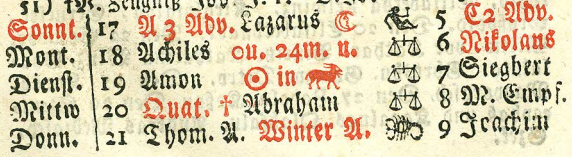 51) Fr. Zeugniß Joh. 1.
Sonnt. 17 A 3 Adv. Lazarus ☾ 5 C2 Adv.
Mont. 18 Achiles ou. 24m. n. ♎ 6 Nikolaus
Dienst. 19 Amon ☉ in ♑ ♎ 7 Siegbert
Mittw 20 Quat. † Abraham ♎ 8 M. Empf.
Donn. 21 Thom. A. Winter A. ♏ 9 Joachim